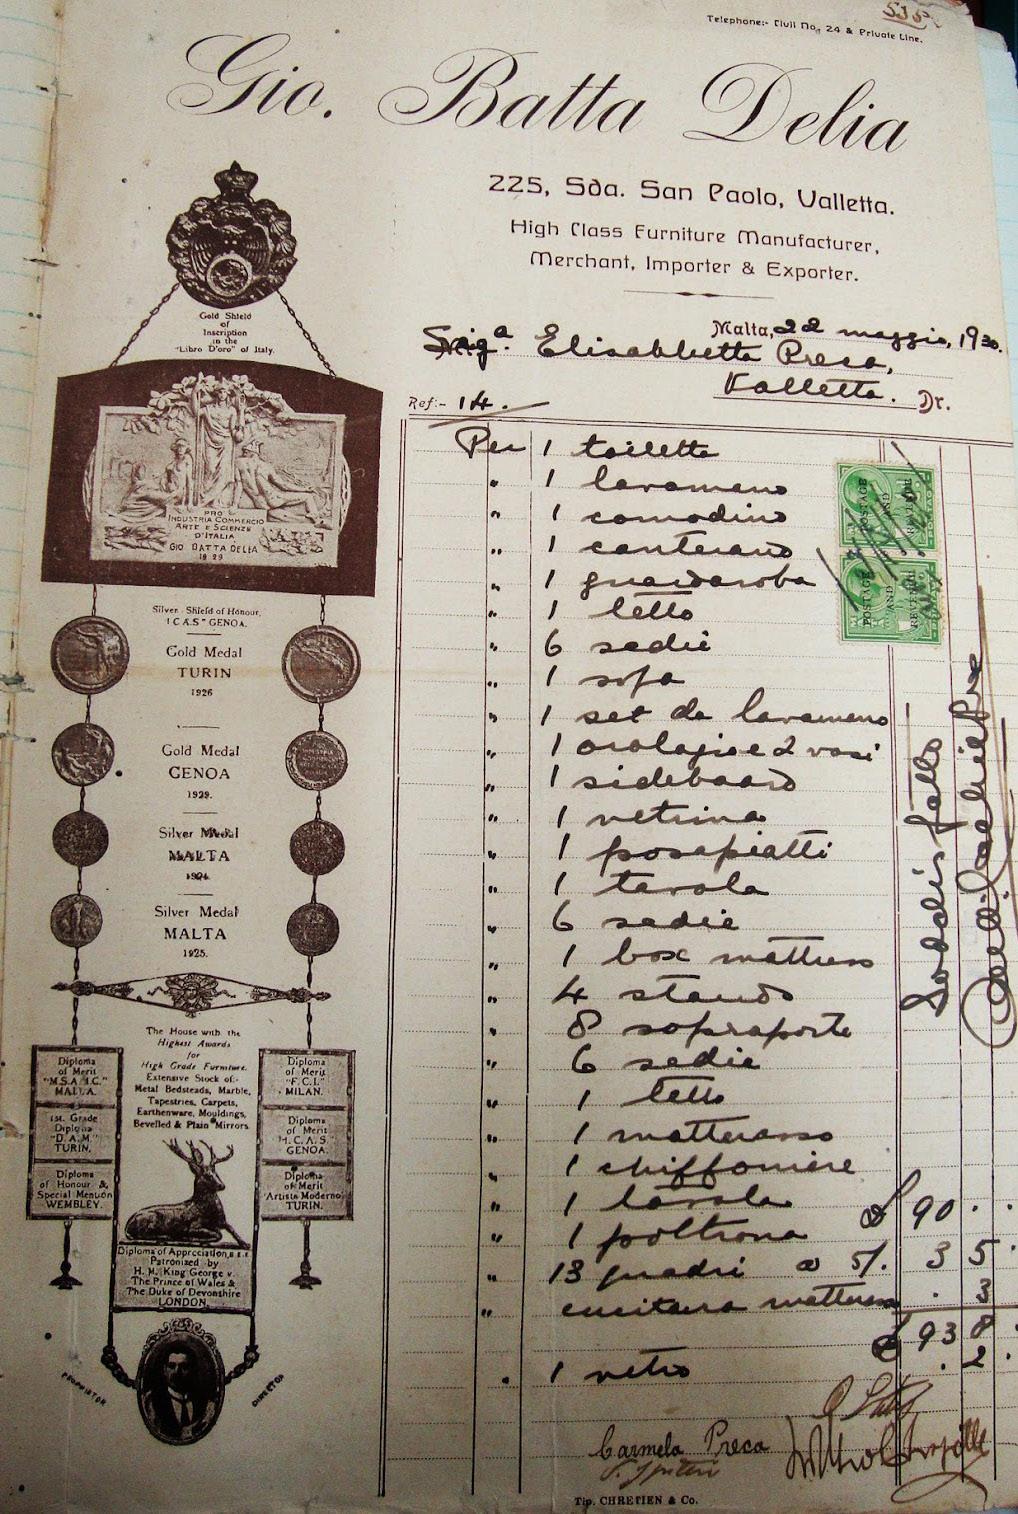 Telephone:- Civil No. 24 & Private Line.
Gio. Batta Delia
225, Sda. San Paolo, Valletta.
High Class Furniture Manufacturer,
Merchant, Importer & Exporter.
Malta, 22 maggio, 1930.
Sig.a Elisabbetta Preca,
Valletta. Dr.
Ref:- 14.
Per 1 toilette
" 1 lavamano
" 1 comodino
" 1 canterano
" 1 guardaroba
" 1 letto
" 6 sedie
" 1 sofa
" 1 set da lavamano
" 1 orologio e 2 vasi
" 1 sideboard
" 1 vetrina
" 1 posapiatti
" 1 tavola
" 6 sedie
" 1 box mattress
" 4 stands
" 8 sopraporte
" 6 sedie
" 1 letto
" 1 matterasso
" 1 chiffoniere
" 1 tavola £ 90 . .
" 1 poltrona
" 13 quadri a 5/. 3 5 .
" cucitura matterassi . 3
£ 93 8
" 1 vetro . 2 .
Carmela Preca
Tip. CHRETIEN & Co.
POSTAGE AND REVENUE
POSTAGE AND REVENUE
Soddisfatto
Gold Shield
of
Inscription
in the
"Libro D'oro" of Italy.
PRO
INDUSTRIA COMMERCIO
ARTE E SCIENZE
D'ITALIA
GIO BATTA DELIA
1929
Silver Shield of Honour,
"I.C.A.S" GENOA.
Gold Medal
TURIN
1926
Gold Medal
GENOA
1929.
Silver Medal
MALTA
1924.
Silver Medal
MALTA
1925.
The House with the
Highest Awards
for
High Grade Furniture.
Extensive Stock of:-
Metal Bedsteads, Marble,
Tapestries, Carpets,
Earthenware, Mouldings,
Bevelled & Plain Mirrors.
Diploma
of Merit
"M.S.A. I.C."
MALTA.
1st. Grade
Diploma
"D.A.M."
TURIN.
Diploma
of Honour &
Special Mention
WEMBLEY.
Diploma
of Merit
"F.C.I."
MILAN.
Diploma
of Merit
M.C.A.S.
GENOA.
Diploma
of Merit
"Artista Moderno"
TURIN.
Diploma of Appreciation
Patronized by
H. M. King George v.
The Prince of Wales &
The Duke of Devonshire
LONDON.
PROPRIETOR
DIRECTOR